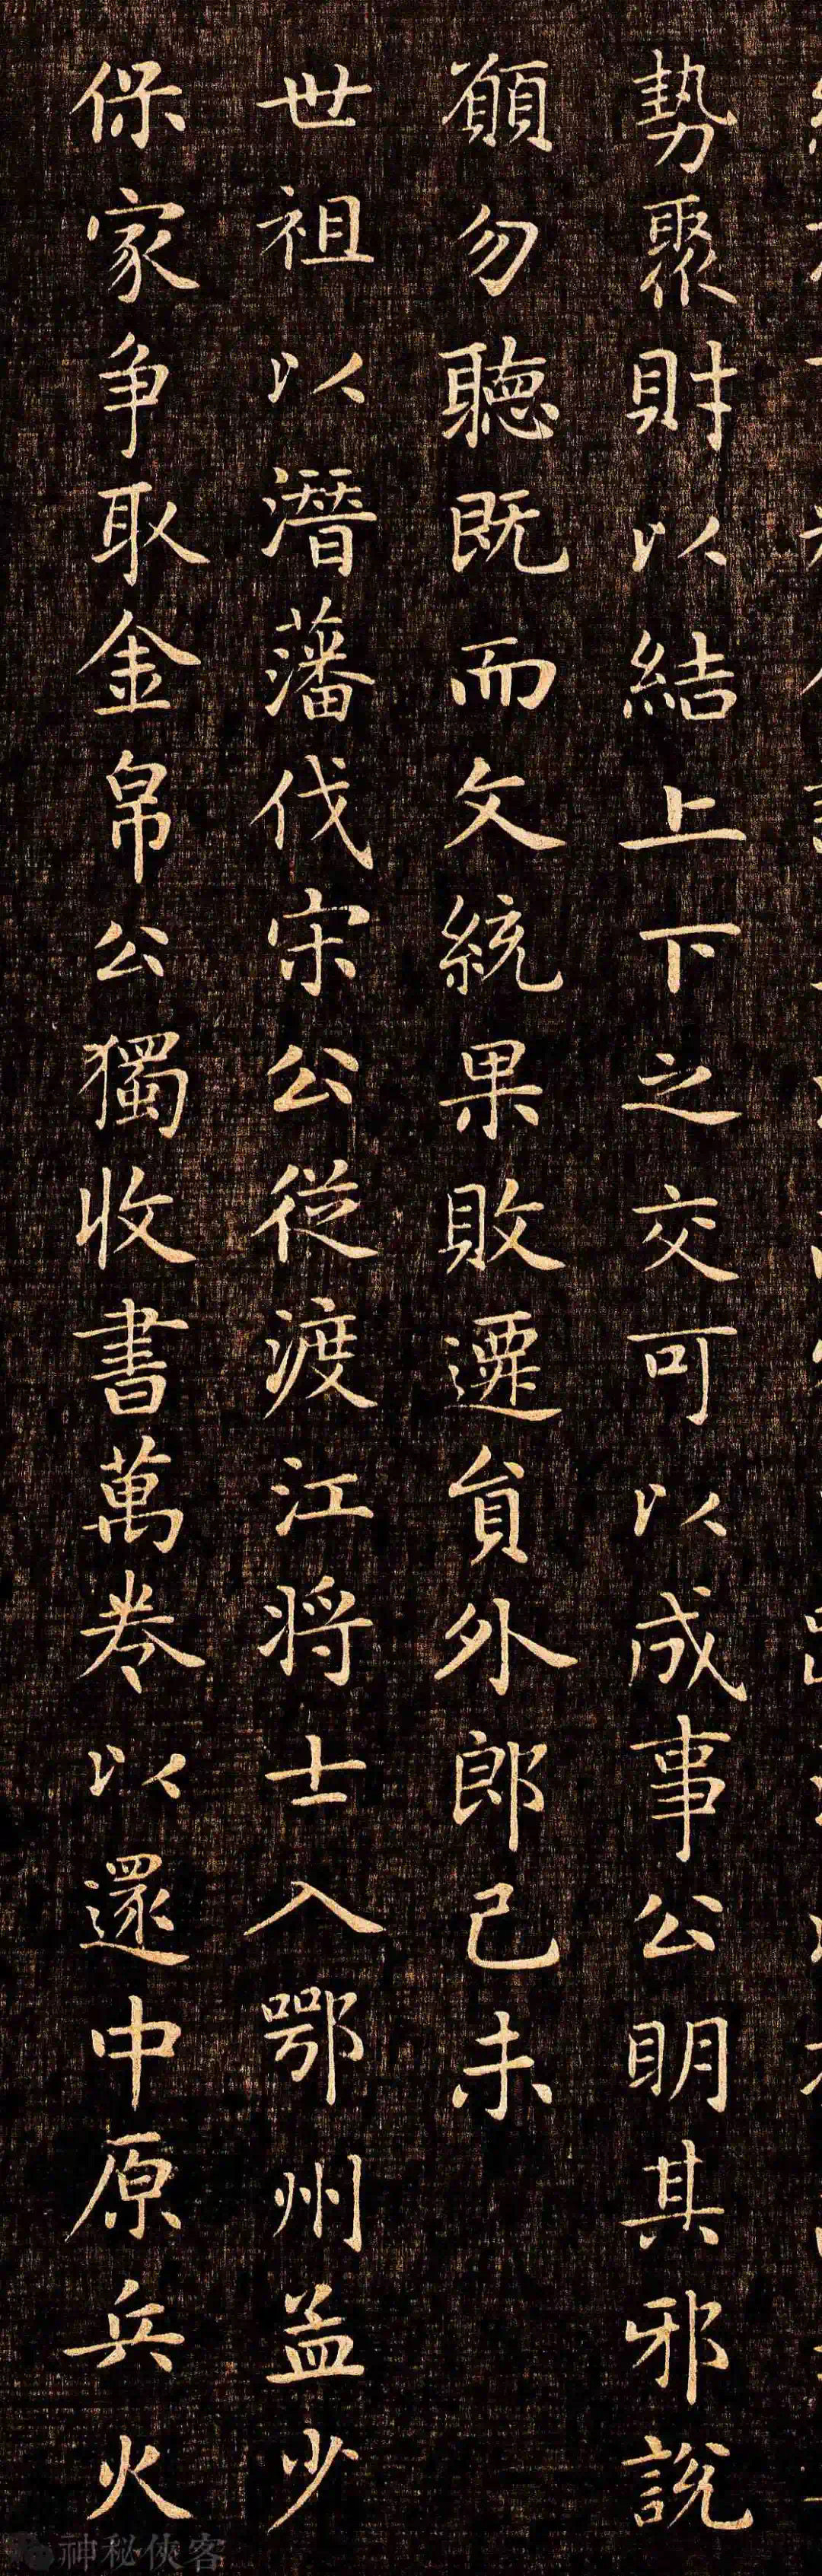 勢聚財以結上下之交可以成事公明其邪說
願勿聽既而文統果敗遷貟外郎己未
世祖以潛藩伐宋公從渡江将士入鄂州益少
保家争取金帛公獨收書萬卷以還中原兵火
神秘俠客